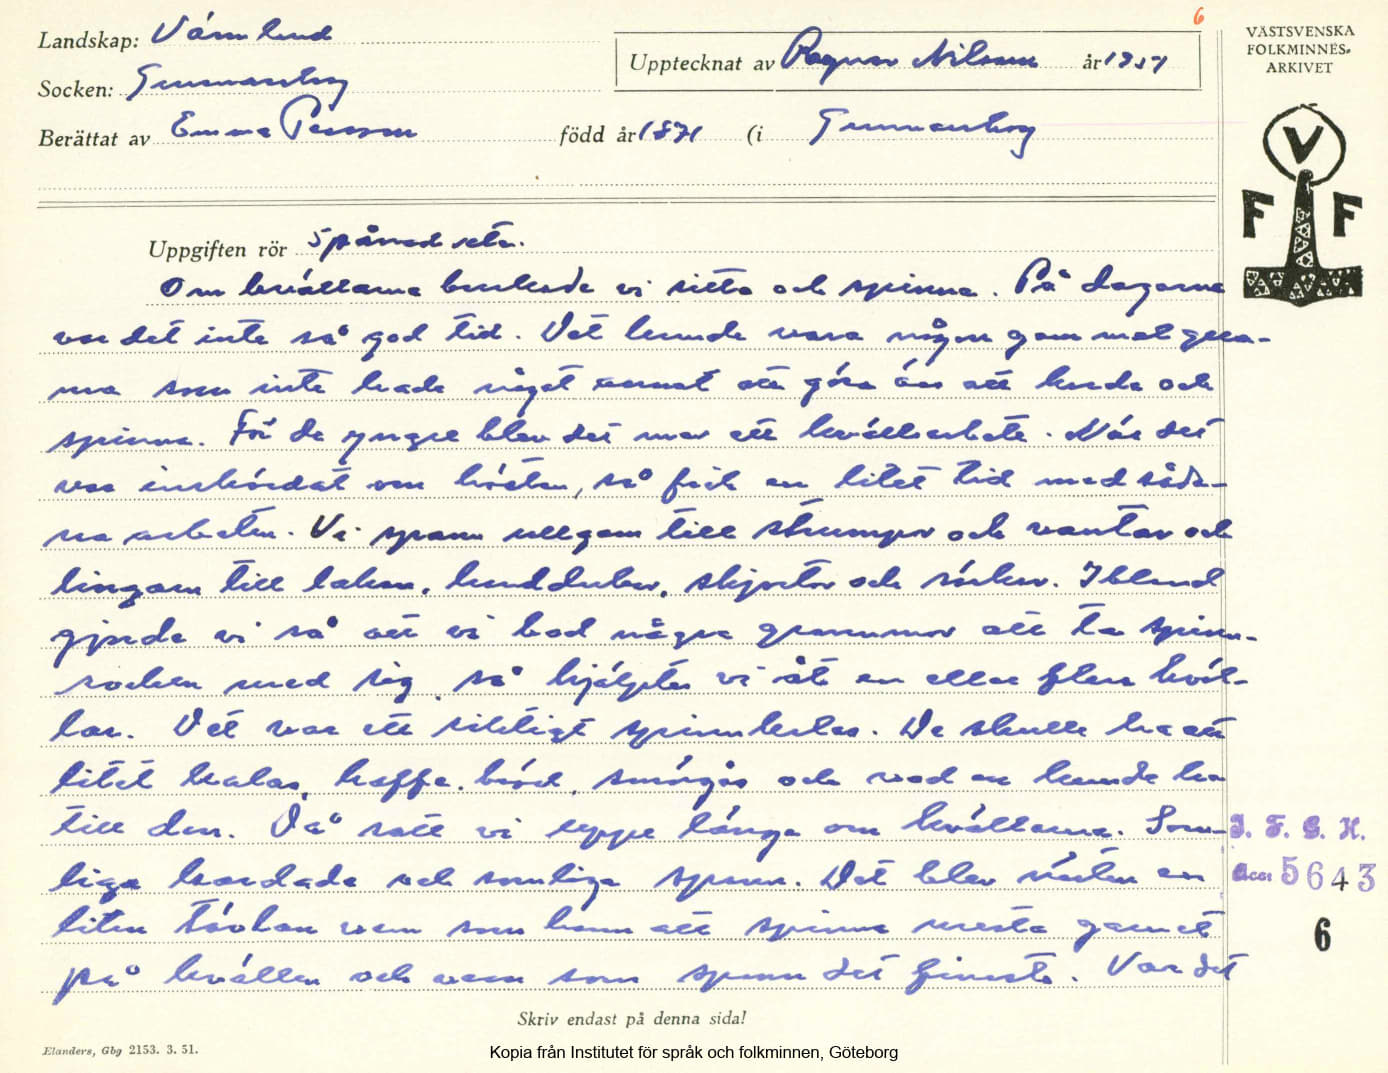 6
Landskap: Värmland
Upptecknat av Ragnar Nilsson år 1957
Socken: Gunnarskog
Berättat av Emma Persson född år 1871 (i Gunnarskog
VÄSTSVENSKA
FOLKMINNES-
ARKIVET
V
F F
Uppgiften rör Spånad etc.
Om kvällarna brukade vi sitta och spinna. På dagarna
var det inte så god tid. Det kunde vara någon gammal gum-
ma som inte hade något annat att göra än att karda och
spinna. För de yngre blev det mer ett kvällsarbete. När det
var inskördat om hösten, så fick en litet tid med såda-
na arbeten. Vi spann ullgarn till strumpor och vantar och
lingarn till lakan, handdukar, skjortor och särkar. Ibland
gjorde vi så att vi bad några grannmor att ta spinn-
rocken med sig, så hjälptes vi åt en eller flera kväl-
lar. Det var ett riktigt spinnkalas. De skulle ha ett
litet kalas, kaffe, bröd, smörgås och vad en kunde ha
till den. Då satt vi uppe länge om kvällarna. Som-
liga kardade och somliga spann. Det blev nästan en
liten tävlan vem som hann att spinna mesta garnet
på kvällen och vem som spann det finaste. Var det
I. F. G. H.
Acc: 5643
6
Skriv endast på denna sida!
Elanders, Gbg 2153. 3. 51.
Kopia från Institutet för språk och folkminnen, Göteborg